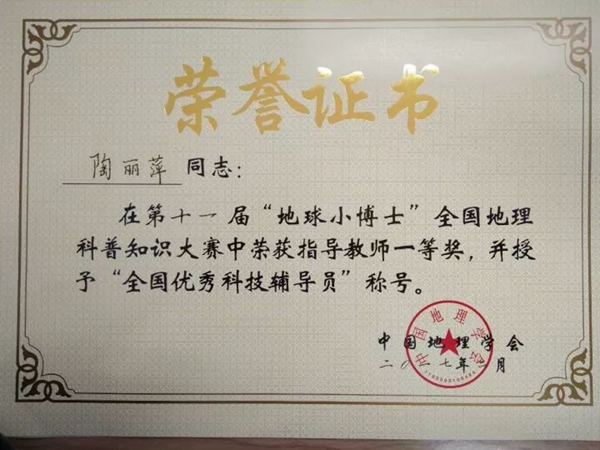 荣誉证书
陶丽萍 同志：
在第十一届“地球小博士”全国地理
科普知识大赛中荣获指导教师一等奖，并授
予“全国优秀科技辅导员”称号。
中国地理学会
二〇一七年 月
中国地理学会